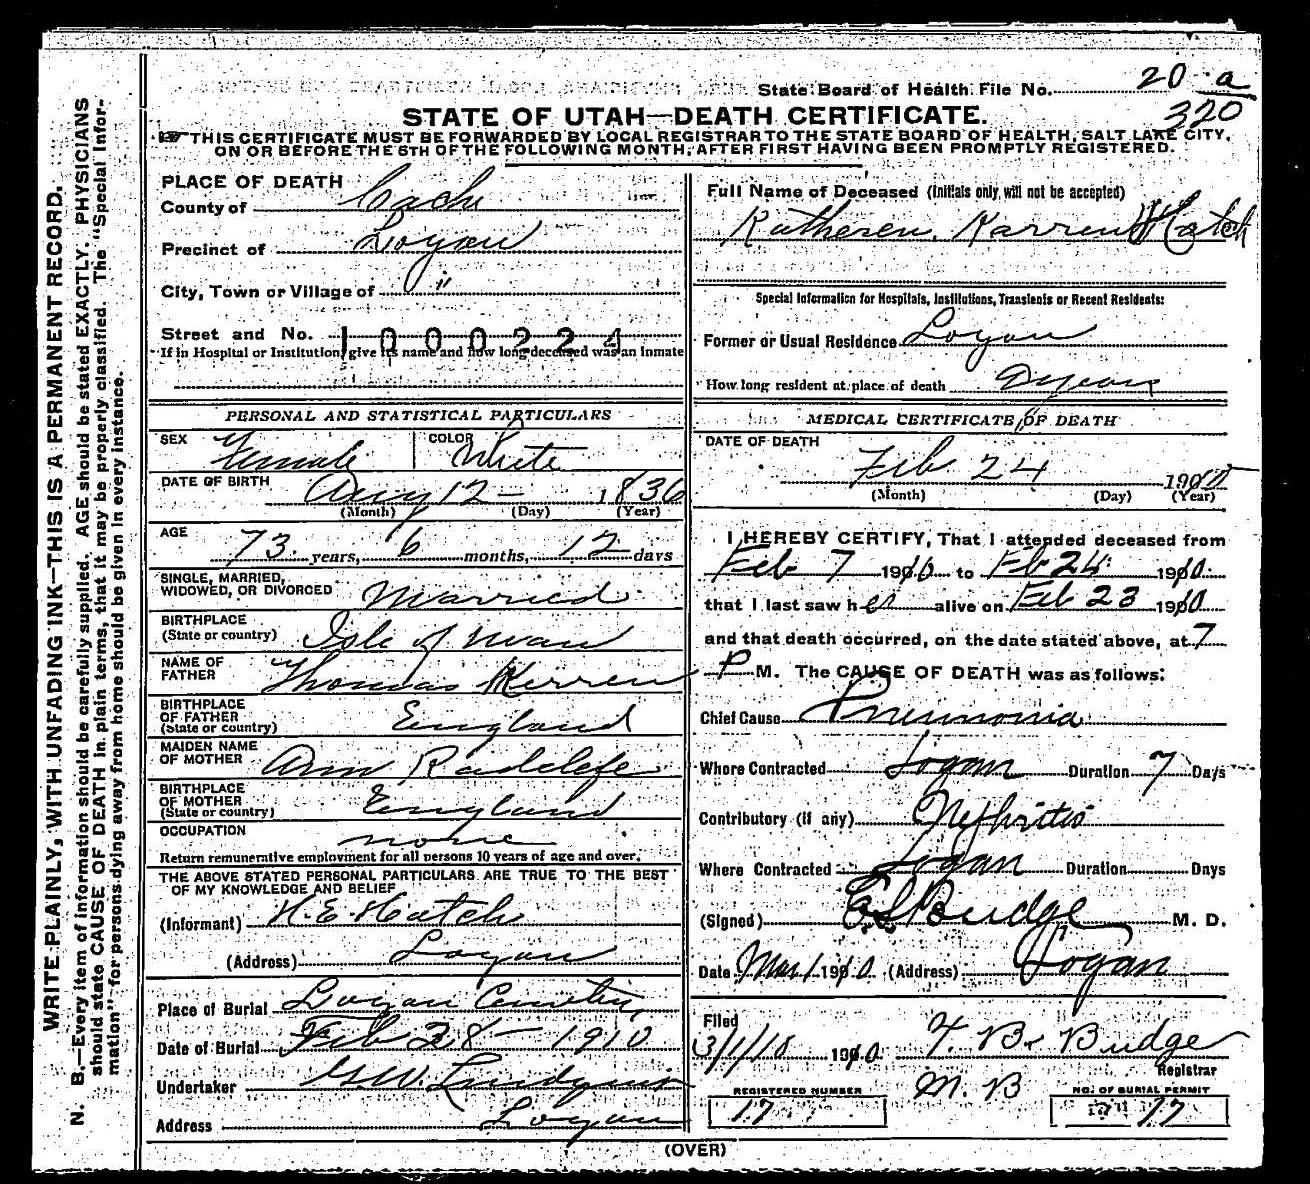 State Board of Health File No. 20 a
320
STATE OF UTAH—DEATH CERTIFICATE.
THIS CERTIFICATE MUST BE FORWARDED BY LOCAL REGISTRAR TO THE STATE BOARD OF HEALTH, SALT LAKE CITY,
ON OR BEFORE THE 5TH OF THE FOLLOWING MONTH, AFTER FIRST HAVING BEEN PROMPTLY REGISTERED.
WRITE PLAINLY, WITH UNFADING INK—THIS IS A PERMANENT RECORD.
N. B.—Every item of information should be carefully supplied. AGE should be stated EXACTLY. PHYSICIANS
should state CAUSE OF DEATH in plain terms, that it may be properly classified. The "Special Infor-
mation" for persons dying away from home should be given in every instance.
PLACE OF DEATH
County of Cache
Precinct of Logan
City, Town or Village of "
Street and No. 1000224
If in Hospital or Institution, give its name and how long deceased was an inmate
PERSONAL AND STATISTICAL PARTICULARS
SEX Female COLOR White
DATE OF BIRTH Aug 12 - 1836
(Month) (Day) (Year)
AGE 73 years, 6 months, 12 days
SINGLE, MARRIED,
WIDOWED, OR DIVORCED Married
BIRTHPLACE
(State or country) Isle of Man
NAME OF
FATHER Thomas Kerren
BIRTHPLACE
OF FATHER
(State or country) England
MAIDEN NAME
OF MOTHER Ann Radclefe
BIRTHPLACE
OF MOTHER
(State or country) England
OCCUPATION none
Return remunerative employment for all persons 10 years of age and over.
THE ABOVE STATED PERSONAL PARTICULARS ARE TRUE TO THE BEST
OF MY KNOWLEDGE AND BELIEF
(Informant) H. E. Hatch
(Address) Logan
Place of Burial Logan Cemetery
Date of Burial Feb 28 - 1910
Undertaker Lundquist
Address Logan
Full Name of Deceased (Initials only will not be accepted)
Katheren Karren Hatch
Special Information for Hospitals, Institutions, Transients or Recent Residents:
Former or Usual Residence Logan
How long resident at place of death years
MEDICAL CERTIFICATE OF DEATH
DATE OF DEATH
Feb 24 1910
(Month) (Day) (Year)
I HEREBY CERTIFY, That I attended deceased from
Feb 7 1910 to Feb 24 1910.
that I last saw her alive on Feb 23 1910
and that death occurred, on the date stated above, at 7
P M. The CAUSE OF DEATH was as follows:
Chief Cause Pneumonia
Where Contracted Logan Duration 7 Days
Contributory (if any) Nephritis
Where Contracted Logan Duration Days
(Signed) Budge M. D.
Date Mar 1 1910 (Address) Logan
Filed
3/1/10 1910 T. B. Budge
Registrar
M. B
REGISTERED NUMBER
17
NO. OF BURIAL PERMIT
17
(OVER)